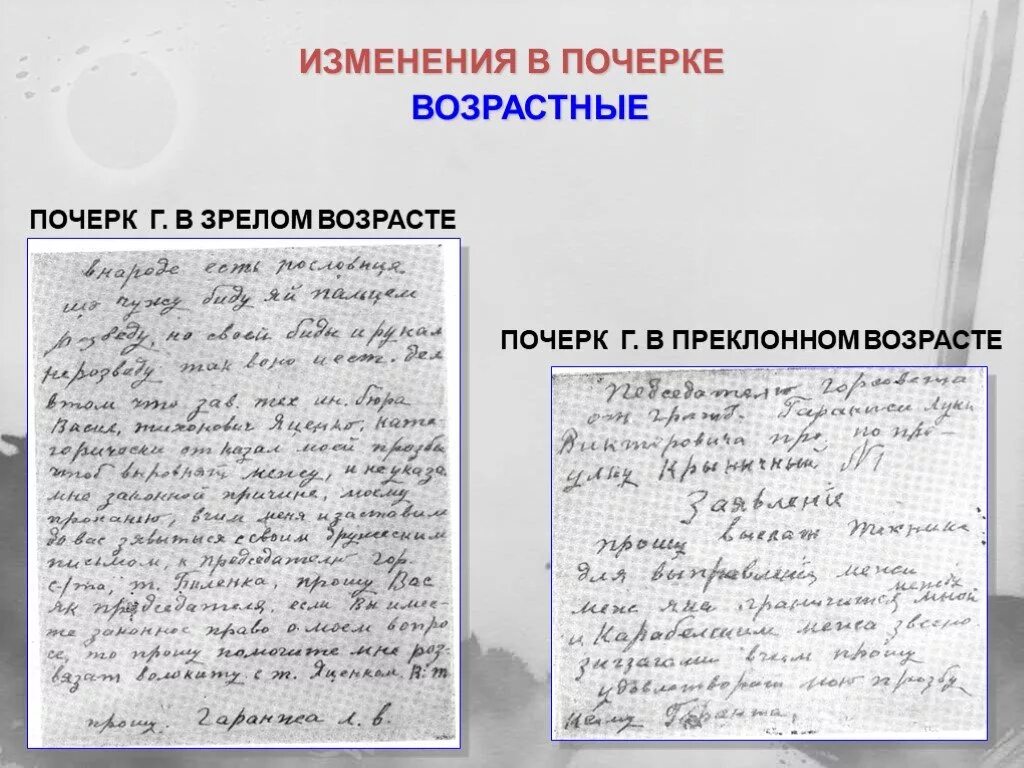 ИЗМЕНЕНИЯ В ПОЧЕРКЕ
ВОЗРАСТНЫЕ
ПОЧЕРК Г. В ЗРЕЛОМ ВОЗРАСТЕ
в народе есть пословица
що чужу биду яй пальцем
розведу, но своей биды и рукам
нерозведу так воно и ест. дел
втом что зав. тех ин. бюра
Васил, тихонович Яценко, кате
горически отказал моей прозьбы
чтоб выровнят межу, и неуказа
мне законной причине, моему
пропанию, вчим меня и заставим
до вас зявыться с своим дружеским
письмом, к председателю гор
с/та, т. Биленка, прошу Вас
як председателя, если Вы имее
те законное право о моем вопро
се, то прошу помогите мне роз
вязат волокиту с т. Яценком. В. т
прошу. Гаранжа Л. В.
ПОЧЕРК Г. В ПРЕКЛОННОМ ВОЗРАСТЕ
Педседателю горсовета
от грожд. Гаранжи Луки
Викторовича про, по про-
улку Крыничный №1
Заявление
прошу выслать техника
для выправления межи
межа граничится между мной
и Карабельским межа звсено
зигзагами вчем прошу
удовлетворит мою прозбу
Гаранжа,